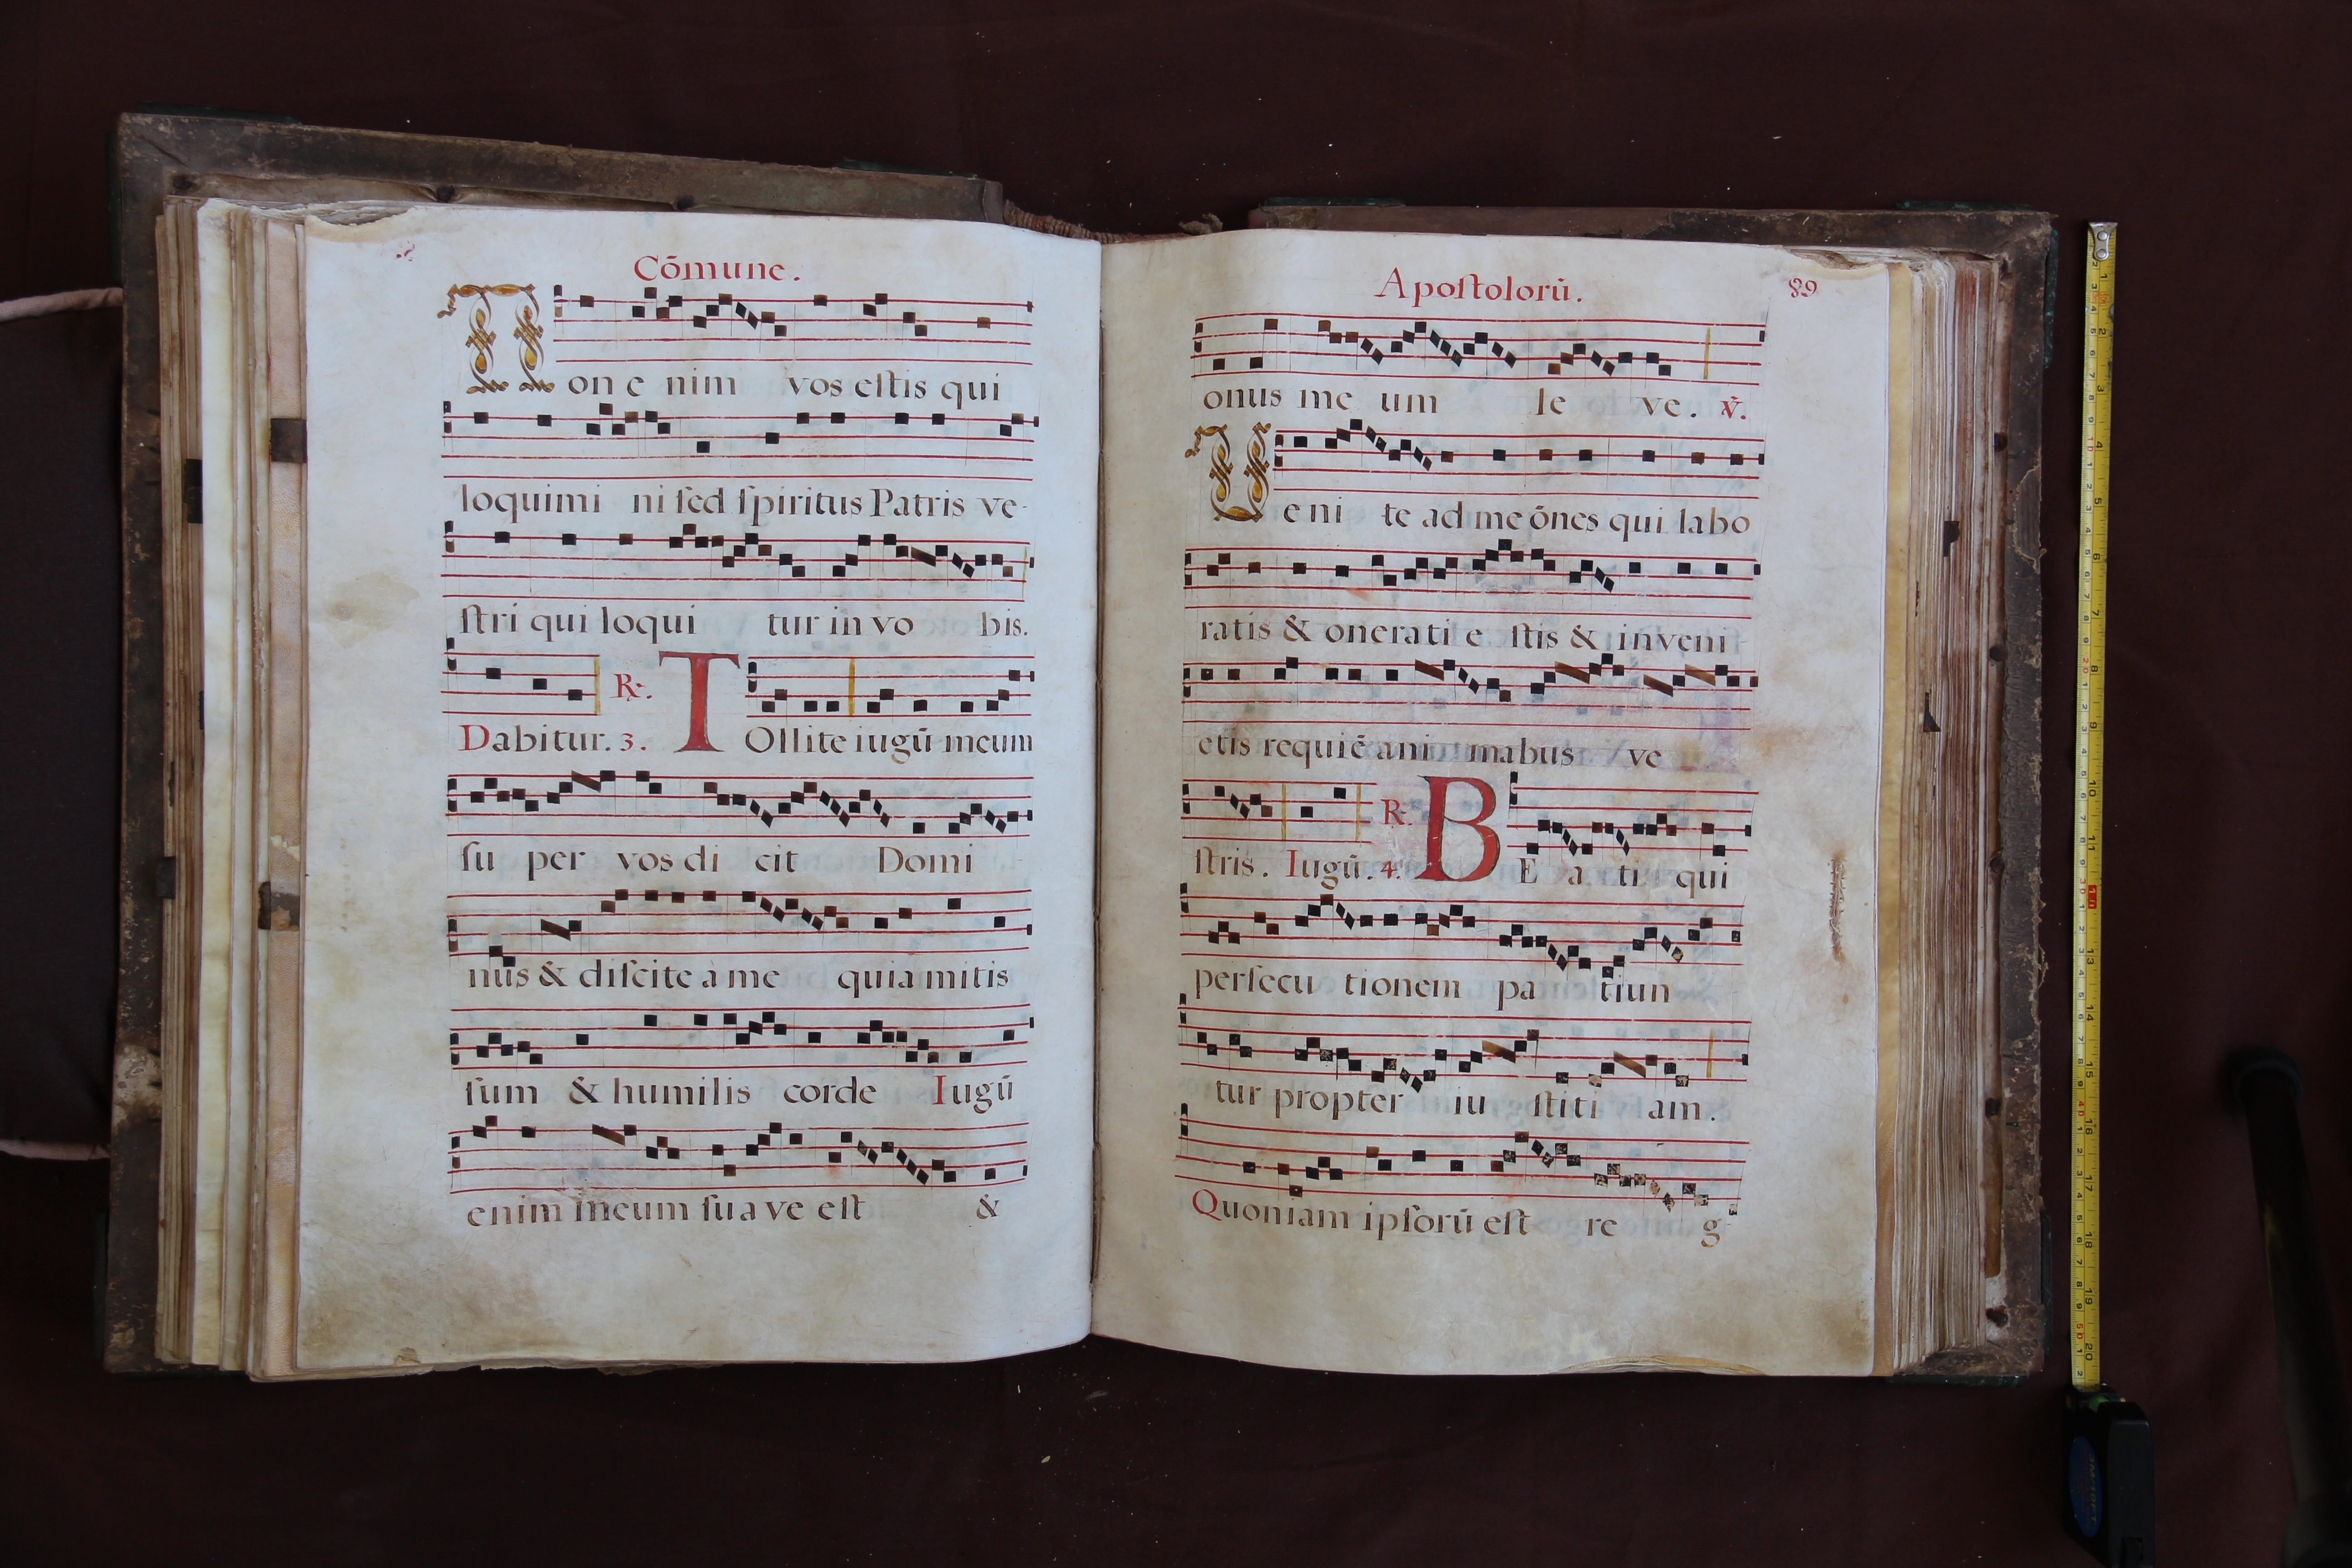 Cõmune.
Non enim vos eſtis qui
loquimi ni ſed ſpiritus Patris ve-
ſtri qui loqui tur in vo bis.
Dabitur. 3. R. TOllite iugũ meum
ſu per vos di cit Domi -
nus & diſcite à me quia mitis
ſum & humilis corde Iugũ
enim meum ſua ve eſt &
Apoſtolorũ. 89
onus me um le ve. ℣.
Ueni te ad me õnes qui labo
ratis & onerati e ſtis & inveni
etis requiẽ ani mabus ve
ſtris. Iugũ. 4. R. BE a ti qui
perſecu tionem pa tiun
tur propter iu ſtiti am.
Quoniam ipſorũ eſt re g